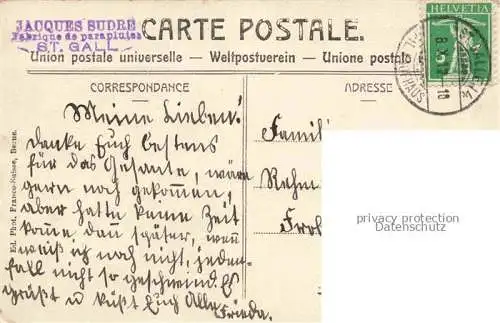 JACQUES SUDRE
Fabrique de parapluies
ST. GALL
CARTE POSTALE.
Union postale universelle. — Weltpostverein. — Unione postale
HELVETIA
5
CORRESPONDANCE
ADRESSE
Meine Lieben!
danke Euch bestens
für das Gesante, wäre
gern noch gekommen,
aber hatte keine Zeit
komme dan später, wenn
weiß ich noch nicht, jeden-
fall nicht so geschwind. Es
grüßt u küßt Euch Alle
Frieda.
Famili
Rehm
Froh
privacy protection
Datenschutz
Ed. Phot. Franco-Suisse, Berne.